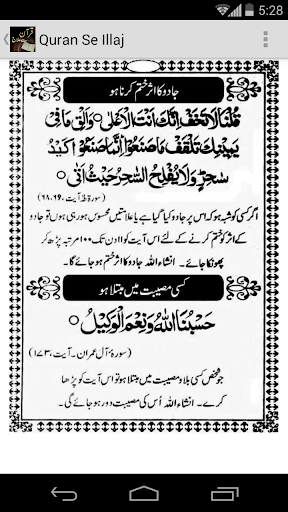 5:28
Quran Se Illaj
جادو کا اثر ختم کرنا ہو
قُلْنَا لَا تَخَفْ اِنَّكَ اَنْتَ الْاَعْلٰى ۝ وَاَلْقِ مَا فِىْ
يَمِيْنِكَ تَلْقَفْ مَا صَنَعُوْا اِنَّمَا صَنَعُوْا كَيْدُ
سٰحِرٍ وَلَا يُفْلِحُ السّٰحِرُ حَيْثُ اَتٰى ۝
(سورۃ طٰہٰ، آیت، ۶۸،۶۹)
اگر کسی کو شبہ ہو کہ اس پر جادو کیا ہے یا علامتیں محسوس ہو رہی ہوں تو جادو
کے اثر کو ختم کرنے کے لئے اس آیت کو ۱۱ دن تک ۱۰۰ مرتبہ پڑھ کر
پھونکا جائے۔ انشاء اللہ جادو کا اثر ختم ہو جائے گا۔
کسی مصیبت میں مبتلا ہو
حَسْبُنَا اللّٰهُ وَنِعْمَ الْوَكِيْلُ ۝
(سورۃ آل عمران۔ آیت، ۱۷۳)
جو شخص کسی بلا و مصیبت میں مبتلا ہو تو اس آیت کو پڑھا
کرے۔ انشاء اللہ اُس کی مصیبت دور ہو جائے گی۔